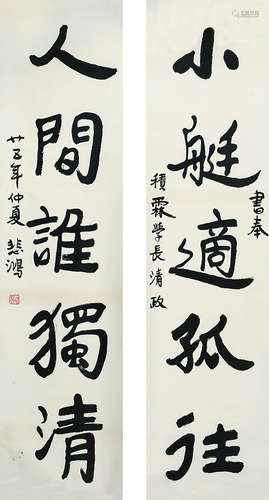 書奉
小艇適孤往
積霖學長清政
人間誰獨清
廿五年仲夏 悲鴻